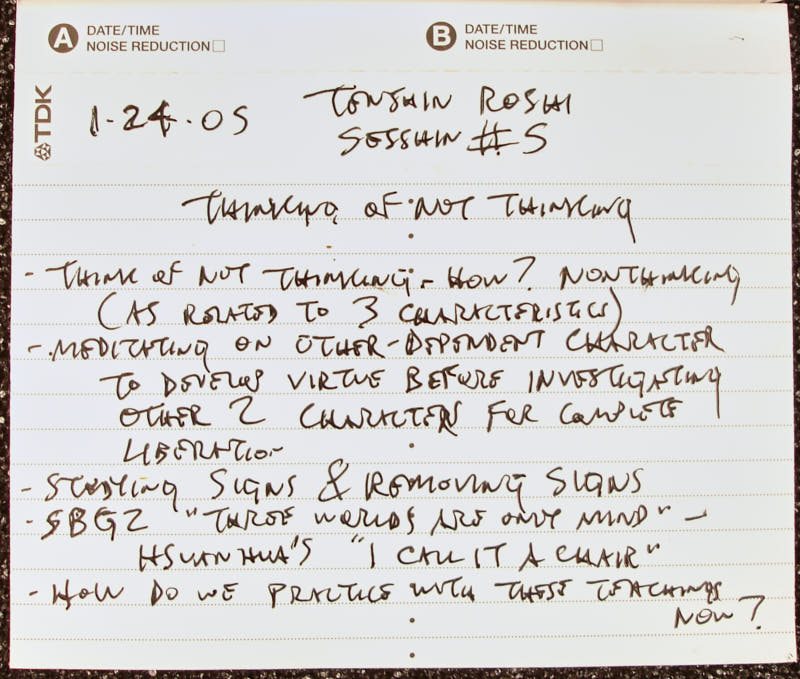 A DATE/TIME
NOISE REDUCTION
B DATE/TIME
NOISE REDUCTION
TDK
1-24-05
TENSHIN ROSHI
SESSHIN #5
THINKING OF NOT THINKING
- THINK OF NOT THINKING - HOW? NONTHINKING
(AS RELATED TO 3 CHARACTERISTICS)
- MEDITATING ON OTHER-DEPENDENT CHARACTER
TO DEVELOP VIRTUE BEFORE INVESTIGATING
OTHER 2 CHARACTERS FOR COMPLETE
LIBERATION
- STUDYING SIGNS & REMOVING SIGNS
- SBGZ "THREE WORLDS ARE ONLY MIND" -
HSUAN HUA'S "I CALL IT A CHAIR"
- HOW DO WE PRACTICE WITH THESE TEACHINGS
NOW?